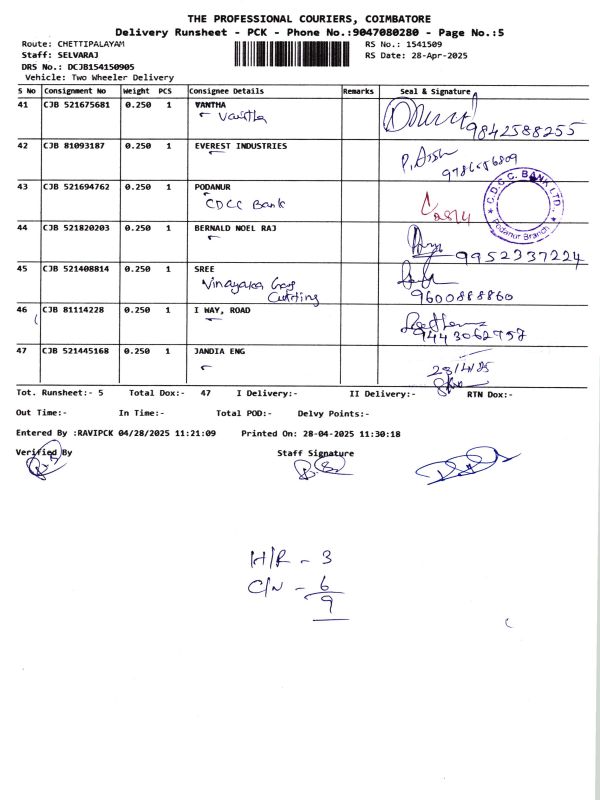 THE PROFESSIONAL COURIERS, COIMBATORE
Delivery Runsheet - PCK - Phone No.:9047080280 - Page No.:5
Route: CHETTIPALAYAM
RS No.: 1541509
Staff: SELVARAJ
RS Date: 28-Apr-2025
DRS No.: DCJB154150905
Vehicle: Two Wheeler Delivery
S No Consignment No Weight PCS Consignee Details Remarks Seal & Signature
41 CJB 521675681 0.250 1 VANTHA
Vantha
9842588255
42 CJB 81093187 0.250 1 EVEREST INDUSTRIES
43 CJB 521694762 0.250 1 PODANUR
CDCC Bank
C.D.C.C. BANK LTD.
Podanur Branch
44 CJB 521820203 0.250 1 BERNALD NOEL RAJ
9952337224
45 CJB 521408814 0.250 1 SREE
Vinayaka
Cutting
9600888860
46 CJB 81114228 0.250 1 I WAY, ROAD
9443062957
47 CJB 521445168 0.250 1 JANDIA ENG
Tot. Runsheet:- 5 Total Dox:- 47 I Delivery:- II Delivery:- RTN Dox:-
Out Time:- In Time:- Total POD:- Delvy Points:-
Entered By :RAVIPCK 04/28/2025 11:21:09 Printed On: 28-04-2025 11:30:18
Verified By Staff Signature
H/R - 3
C/N - 6
9